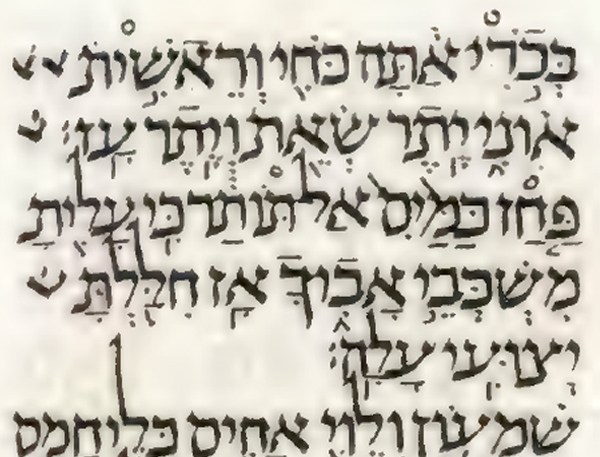 בְּכֹרִי אַתָּה כֹּחִי וְרֵאשִׁית
אוֹנִי יֶתֶר שְׂאֵת וְיֶתֶר עָז׃
פַּחַז כַּמַּיִם אַל תּוֹתַר כִּי עָלִיתָ
מִשְׁכְּבֵי אָבִיךָ אָז חִלַּלְתָּ
יְצוּעִי עָלָה׃
שמעון ולוי אחים כלי חמס